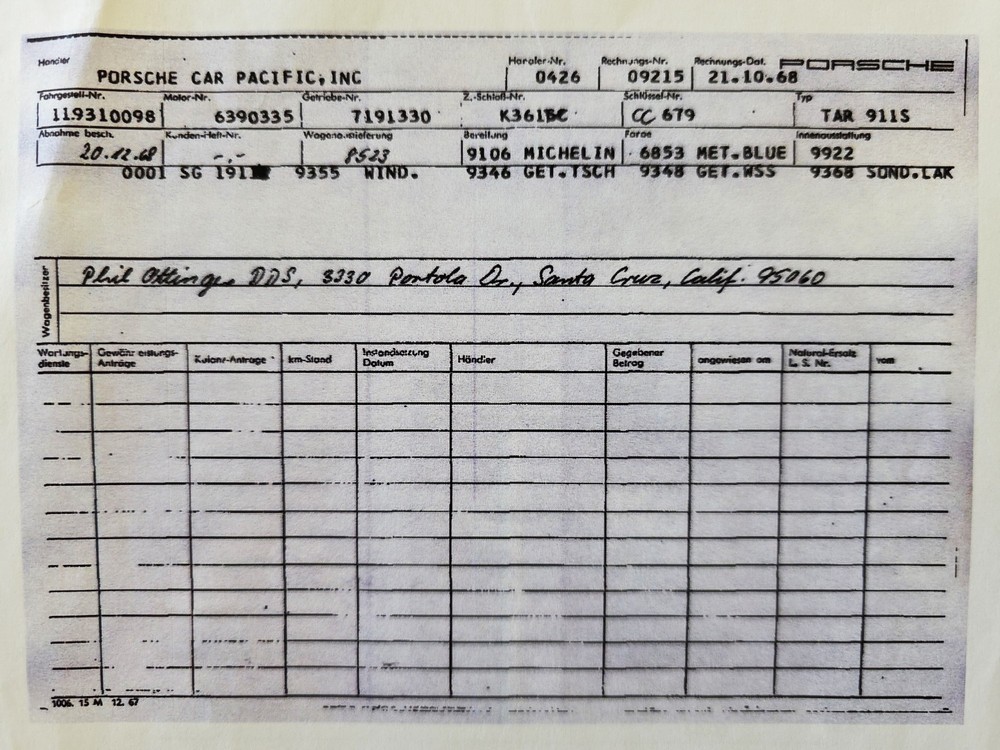 Händler Händler-Nr. Rechnungs-Nr. Rechnungs-Dat. PORSCHE
PORSCHE CAR PACIFIC, INC 0426 09215 21.10.68
Fahrgestell-Nr. Motor-Nr. Getriebe-Nr. Z.-Schloß-Nr. Schlüssel-Nr. Typ
119310098 6390335 7191330 K361 CC 679 TAR 911S
Abnahme besch. Kunden-Heft-Nr. Wagenauslieferung Bereifung Farbe Innenausstattung
20.12.68 -.- 8523 9106 MICHELIN 6853 MET.BLUE 9922
0001 SG 191 9355 WIND. 9346 GET.TSCH 9348 GET.WSS 9368 SOND.LAK
Wagenbesitzer
Phil Ottinger DDS, 3330 Portola Dr., Santa Cruz, Calif. 95060
Wartungs- Gewährleistungs- Kulanz-Anträge km-Stand Instandsetzung Händler Gegebener angewiesen am Natural-Ersatz vom
dienste Anträge Datum Betrag L. S. Nr.
1006. 15 M 12. 67